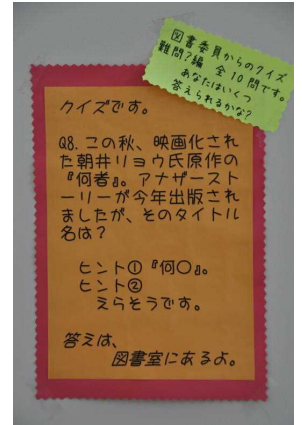 図書委員からのクイズ
難問?編 全10問です。
あなたはいくつ
答えられるかな?
クイズです。
Q8. この秋、映画化され
た朝井リョウ氏原作の
『何者』。アナザースト
ーリーが今年出版され
ましたが、そのタイトル
名は?
ヒント① 『何〇』。
ヒント②
えらそうです。
答えは、
図書室にあるよ。